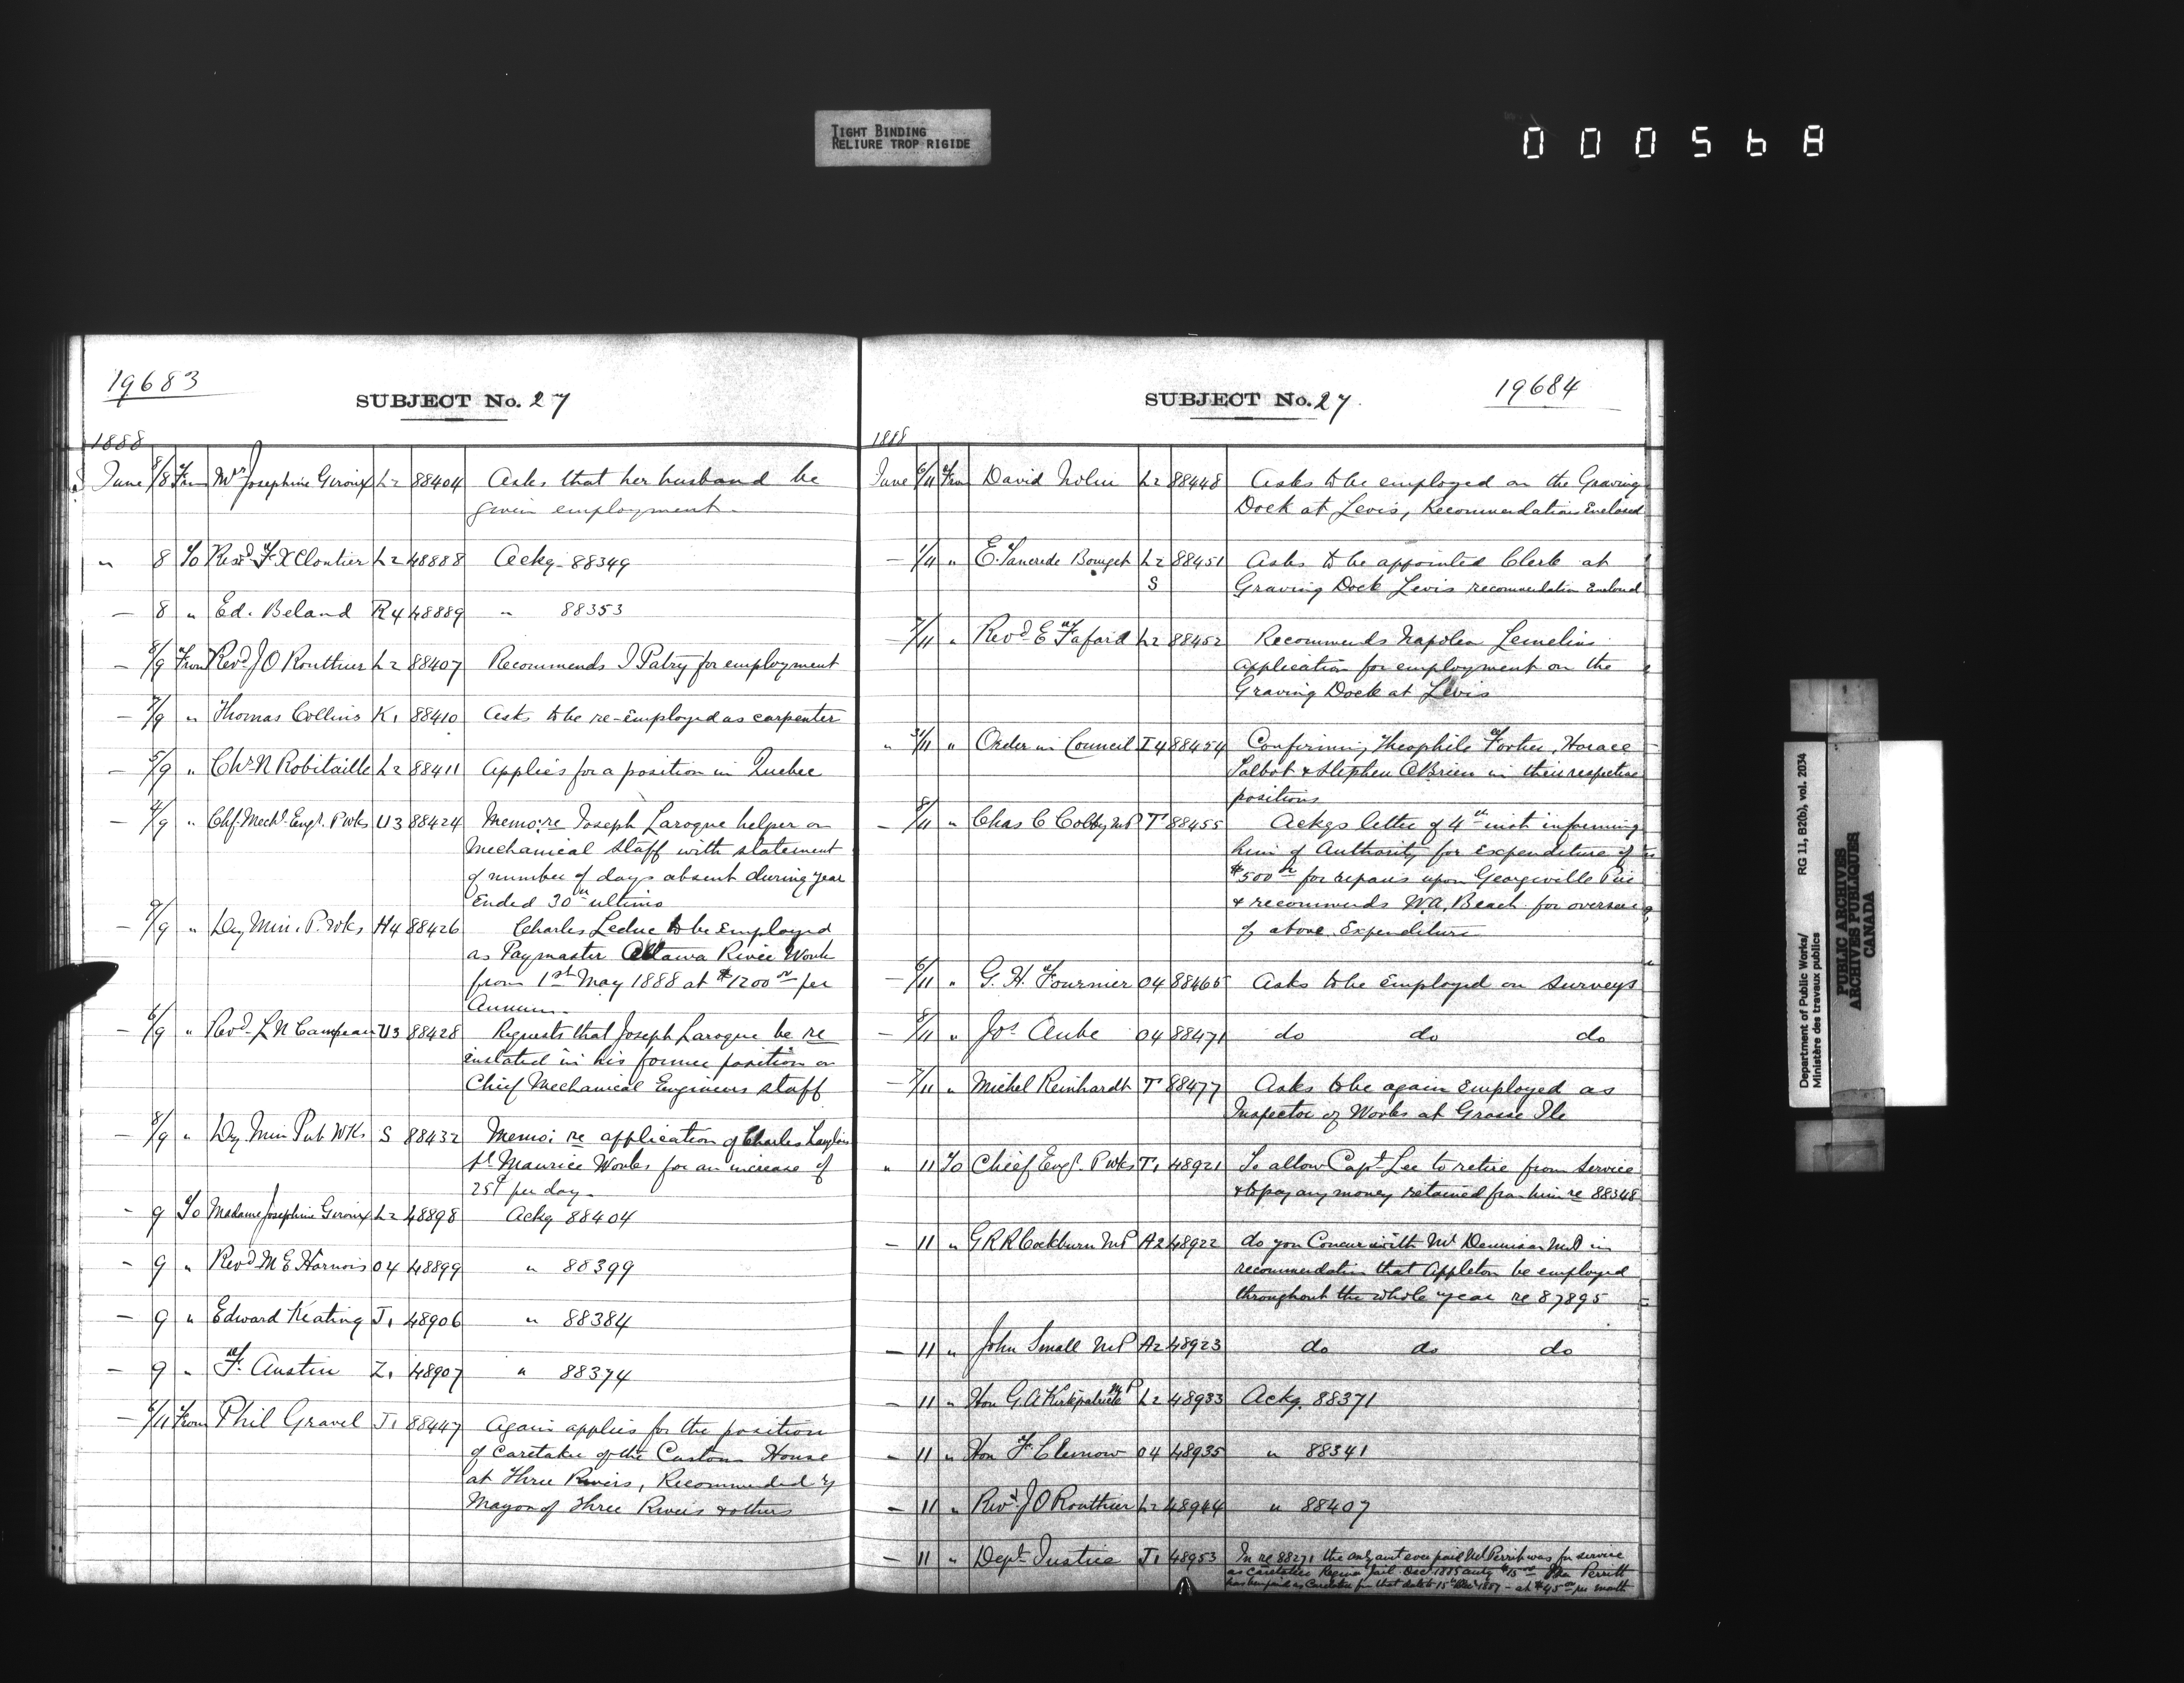 TIGHT BINDING
RELIURE TROP RIGIDE
0 0 0 5 6 8
19683
SUBJECT No. 27
1888
June 8/8 From Mrs Josephine Giroux L2 88404 Asks that her husband be
given employment.
" 8 To Revd F X Cloutier L2 48888 Ackg 88349
— 8 " Ed. Beland R4 48889 " 88353
— 8/9 From Revd J O Routhier L2 88407 Recommends I Patry for employment
— 7/9 " Thomas Collins K1 88410 Asks to be re-employed as carpenter
— 5/9 " Chs N Robitaille L2 88411 Applies for a position in Quebec
— 4/9 " Chf. Mechl. Engr. P wks U3 88424 Memo: re Joseph Laroque helper on
Mechanical Staff with statement
of number of days absent during year
Ended 30th ultimo
— 9/9 " Dy Min. P. Wks H4 88426 Charles Leduc to be employed
as Paymaster Ottawa River Works
from 1st May 1888 at $1200 00 per
Annum.
— 6/9 " Revd. L N Campeau U3 88428 Requests that Joseph Laroque be re
instated in his former position on
Chief Mechanical Engineers staff
— 8/9 " Dy Min Pub Wks S 88432 Memo: re application of Charles Langlois
St. Maurice Works for an increase of
25¢ per day.
— 9 To Madame Josephine Giroux L2 48898 Ackg 88404
— 9 " Revd M E Harnois O4 48899 " 88399
— 9 " Edward Keating J1 48906 " 88384
— 9 " F. Austin Z1 48907 " 88374
— 6/11 From Phil Gravel J1 88447 Again applies for the position
of Caretaker of the Custom House
at Three Rivers, Recommended by
Mayor of Three Rivers & others
SUBJECT No. 27.
19684
1888
June 6/11 From David Nolin L2 88448 Asks to be employed on the Graving
Dock at Levis, Recommendations Enclosed
— 1/11 " E. Tancrede Bourget L2 88451 Asks to be appointed Clerk at
S Graving Dock Levis recommendation Enclosed
— 7/11 " Revd. E Fafard L2 88452 Recommends Napoleon Lemelins
application for employment on the
Graving Dock at Levis
" 31/11 " Order in Council I4 88454 Confirming Theophile Fortier, Horace
Talbot & Stephen O'Brien in their respective
positions
— 8/11 " Chas C Colby MP T 88455 Ackgs letter of 4th inst informing
him of Authority for Expenditure of
$500 00 for repairs upon Georgeville Pier
& recommends W.A. Beach for overseeing
of above Expenditure
— 6/11 " G. H. Fournier O4 88465 Asks to be Employed on Surveys
— 8/11 " Jos. Aube O4 88471 do do do
— 7/11 " Michel Reinhardt T 88477 Asks to be again Employed as
Inspector of Works at Grosse Ile
" 11 To Chief Engr. P wks T1 48921 To allow Capt Lee to retire from Service
& to pay any money retained from him re 88348
— 11 " G R R Cockburn MP A2 48922 do you Concur with Mr Dennison MP in
recommendation that Appleton be employed
throughout the whole year re 87895
— 11 " John Small MP A2 48923 do do do
— 11 " Hon G. A Kirkpatrick MP L2 48933 Ackg. 88371
— 11 " Hon F. Clemow O4 48935 " 88341
— 11 " Revd. J O Routhier L2 48944 " 88407
— 11 " Dept Justice J1 48953 In re 88271 the only amt ever paid Perritt was for service
as Caretaker Regina Jail Dec 1885 $15 00 Perritt
has been paid as Caretaker from that date to 15th Dec 1887 - at $45 00 per month
Department of Public Works/
Ministère des travaux publics
RG 11, B2(b), vol. 2034
PUBLIC ARCHIVES
ARCHIVES PUBLIQUES
CANADA